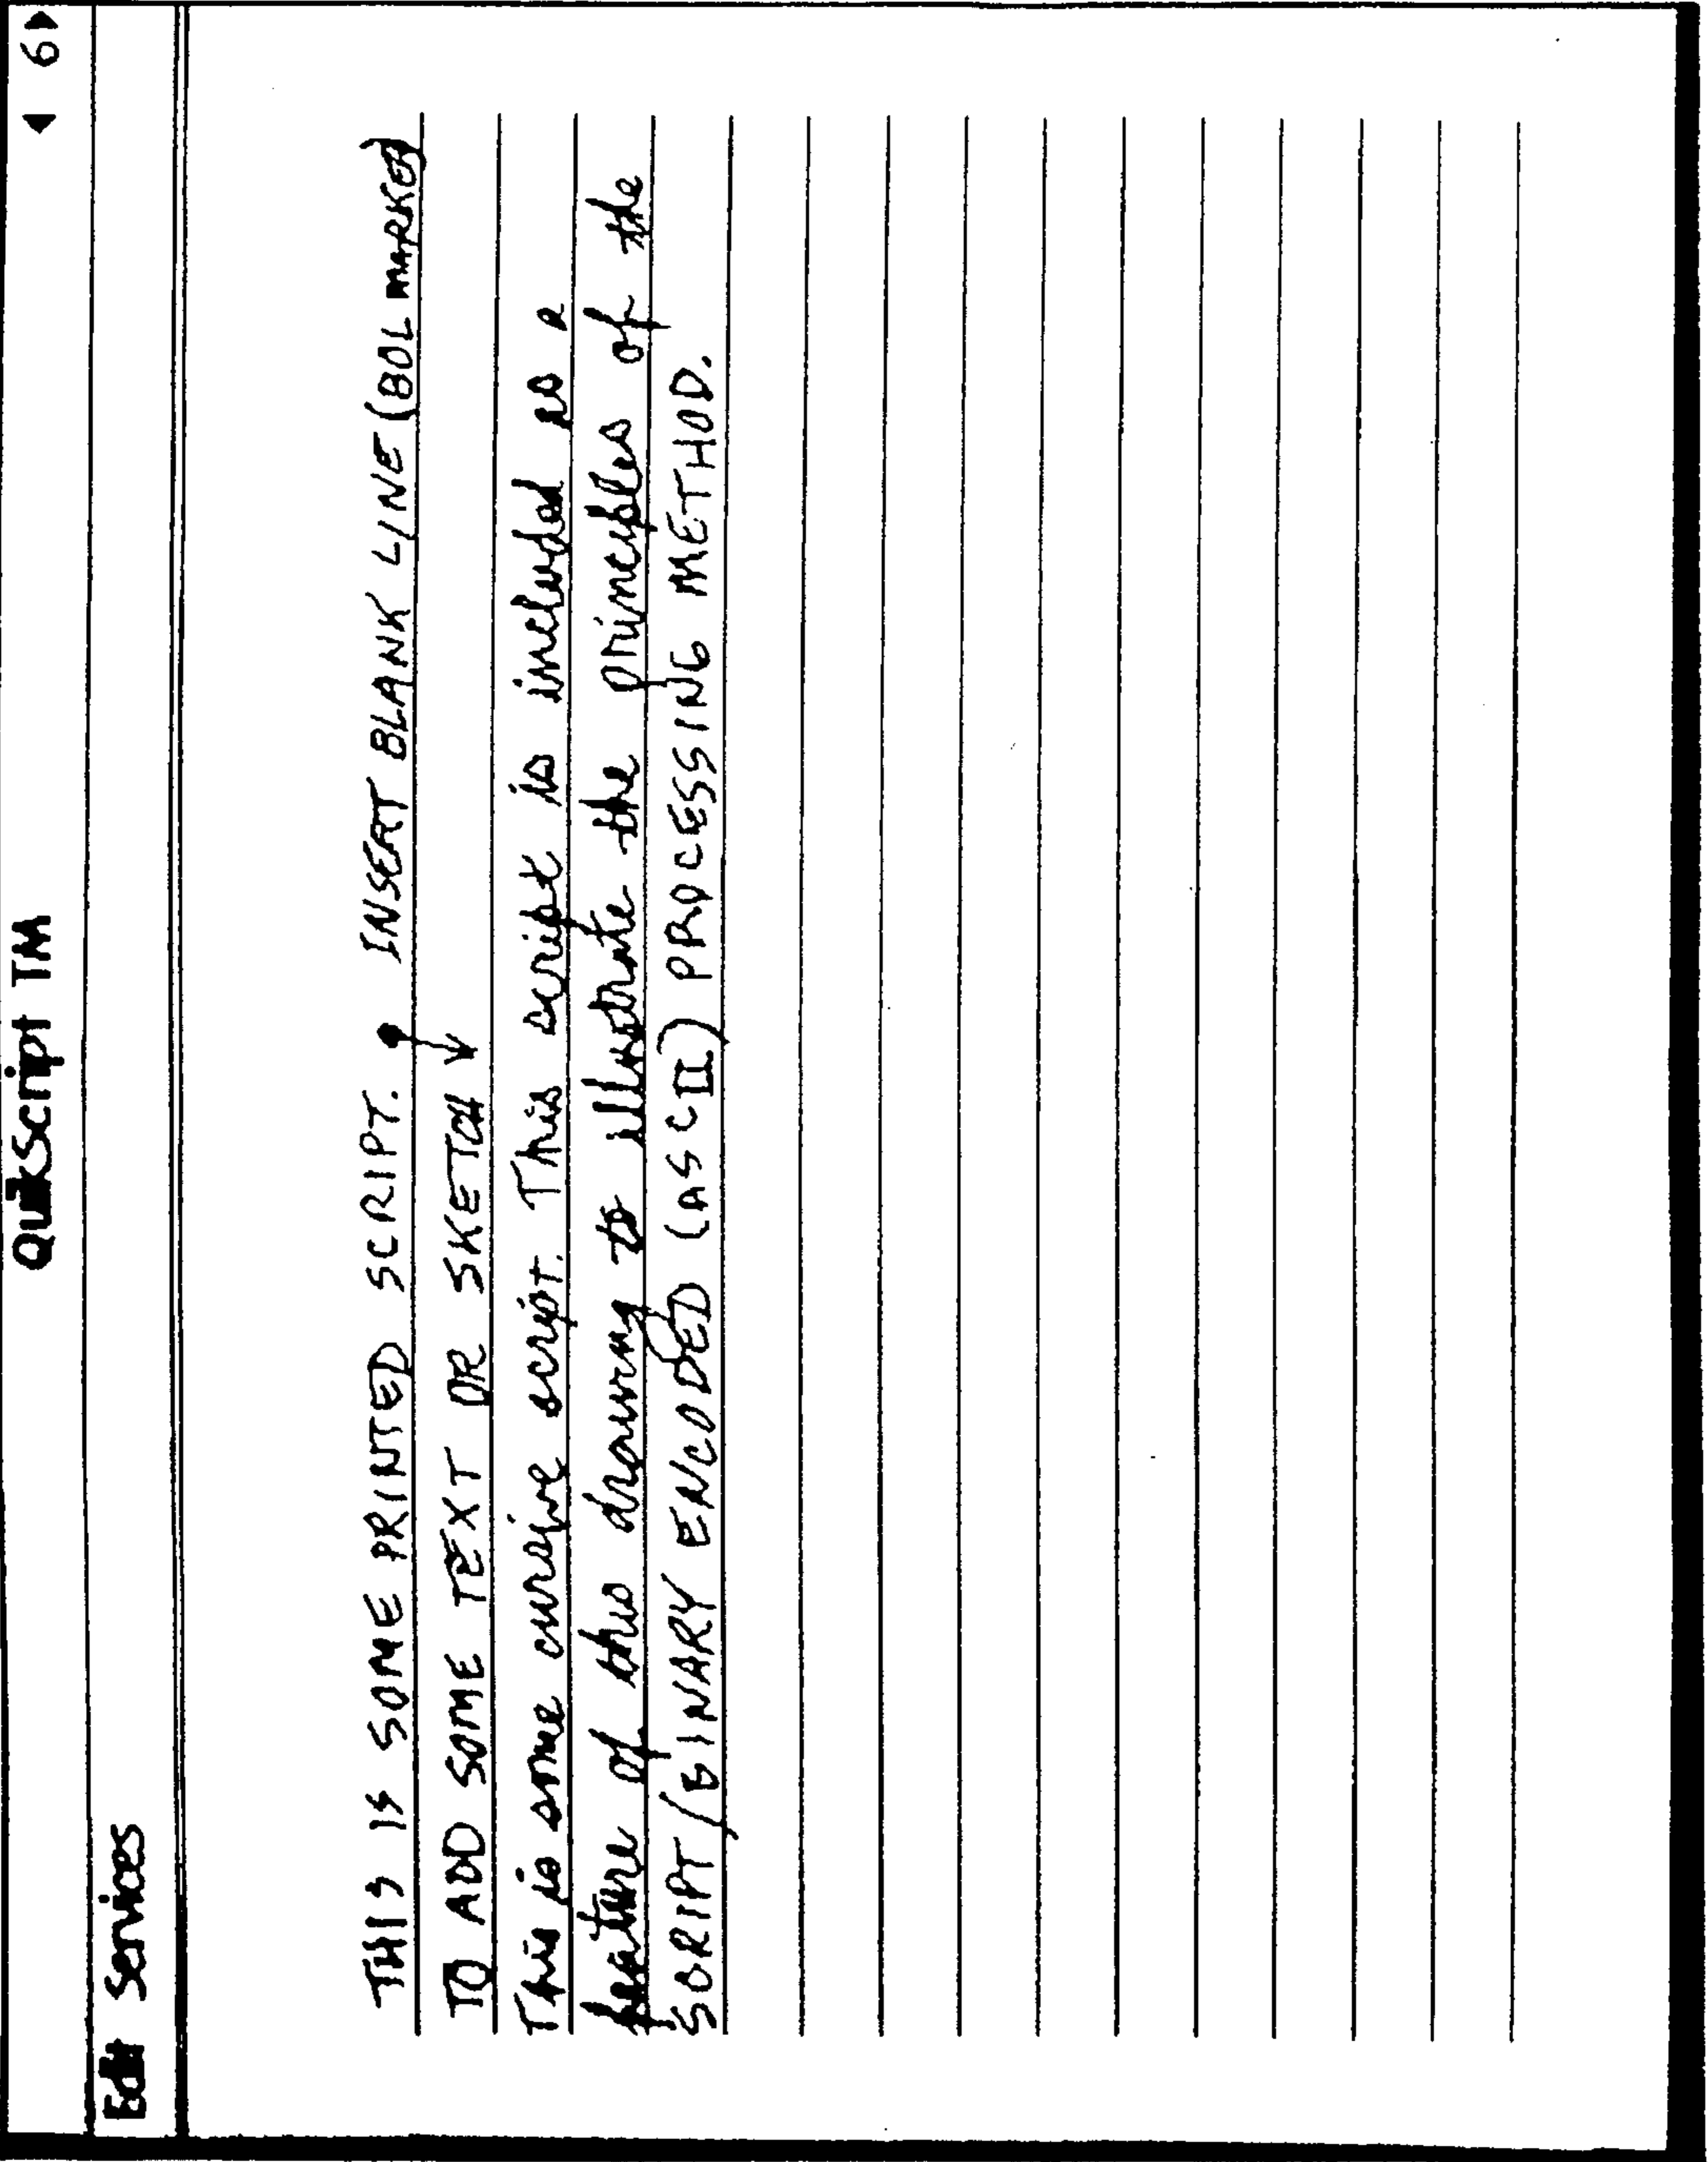 QuikScript TM
◀ 6▶
Edit Services
THIS IS SOME PRINTED SCRIPT. • INSERT BLANK LINE (BOL MARKED)
TO ADD SOME TEXT OR SKETCH ↓
This is some cursive script. This script is included as a
feature of this drawing to illustrate the principles of the
SCRIPT/(BINARY ENCODED (ASCII) PROCESSING METHOD.